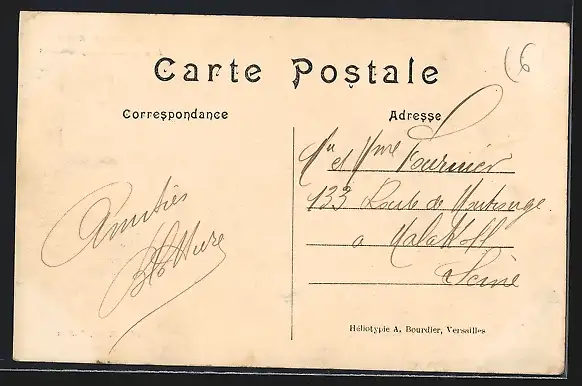 Carte Postale
Correspondance
Adresse
Mr et Mme Fournier
133 Route de Montrouge
a Malakoff
Seine
Amitiés
Héliotypie A. Bourdier, Versailles